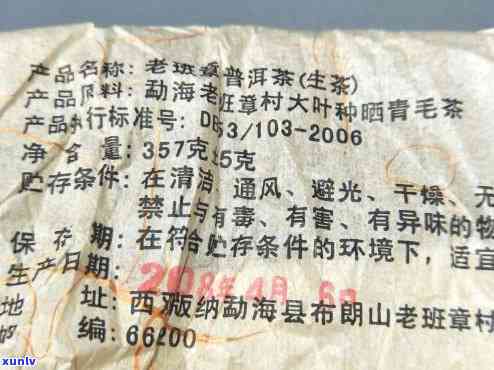 产品名称：老班章普洱茶(生茶)
产品原料：勐海老班章村大叶种晒青毛茶
产品执行标准号：DB53/103-2006
净含量：357克±5克
贮存条件：在清洁、通风、避光、干燥、无
禁止与有毒、有害、有异味的物
保存期：在符合贮存条件的环境下，适宜
生产日期：
2008年4月6日
地址：西双版纳勐海县布朗山老班章村
邮编：66200
xunlv